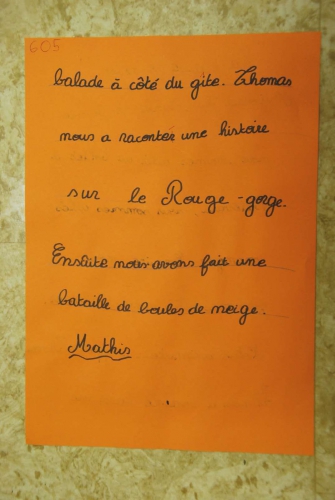 605
balade à côté du gite. Thomas
nous a raconter une histoire
sur le Rouge-gorge.
Ensuite nous avons fait une
bataille de boules de neige.
Mathis